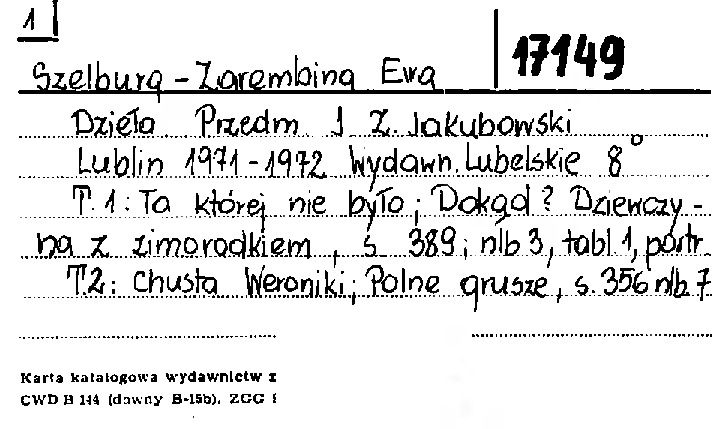 1
17149
Szelburg-Zarembina Ewa
Dzieła Przedm J Z. Jakubowski
Lublin 1971-1972 Wydawn. Lubelskie 8°
T. 1: Ta której nie było; Dokąd? Dziewczy-
na z zimorodkiem, s 389; nlb 3, tabl 1, portr.
T.2: Chusta Weroniki; Polne grusze, s. 356 nlb 7
Karta katalogowa wydawnictw z
CWD B 144 (dawny B-15b). ZGG